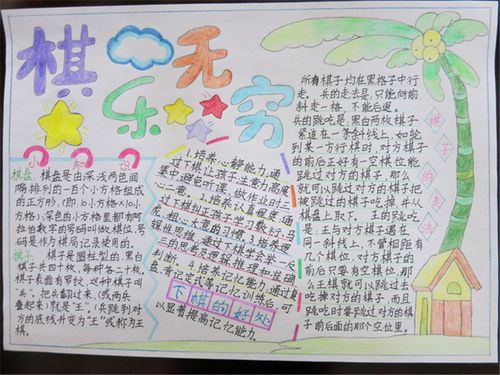 棋乐无穷
小知识
棋盘：棋盘是由深浅两色间
隔排列的一百个小方格组成
的正方形，(即10小方格×10小
方格)；深色的小方格里都有阿
拉伯数字的号码叫做棋位，号
码是作为棋局记录使用的。
棋子：棋子是圆柱型的，黑白
棋子共四十枚，每种各二十枚，
棋子表面有罗纹，这种棋子叫
“兵”，把兵翻过来，(或两兵
叠起来)就是“王”，(兵跳到对
方的底线升变为“王”或称为王
棋。
1.培养心静能力，通
过下棋让孩子注意力高度集
中，避免听课，做作业时三
心二意。
2.培养认真程度，通
过下棋纠正孩子学习敷衍，马
虎，粗心大意的习惯。
3.培养逻
辑思维，通过下棋学会举一反
三的思考及逻辑推理和准确
判断。
4.培养记忆能力，通过复
盘，背记定式等记忆训练后，可
以显著提高记忆能力。
下棋的好处
所有棋子均在黑格子中行
走。兵的走法是，只能向前
斜走一格，不能后退。
兵的跳吃是，黑白两枚棋子
紧连在一条斜线上，如轮
到某一方行棋时，对方棋子
的前后正好有一空棋位能
跳过对方的棋子，那么
就可以跳过对方的棋子把
跳过的棋子吃掉，并从
棋盘上取下。王的跳吃
是，王与对方棋子遇在
同一斜线上，不管相距有
几个棋位，对方棋子的
前后只要有空棋位，那
么王棋就可以跳过去
吃掉对方的棋子，而且
跳吃时要跳过对方的棋
子前后面的那个空位里。
棋子的走法